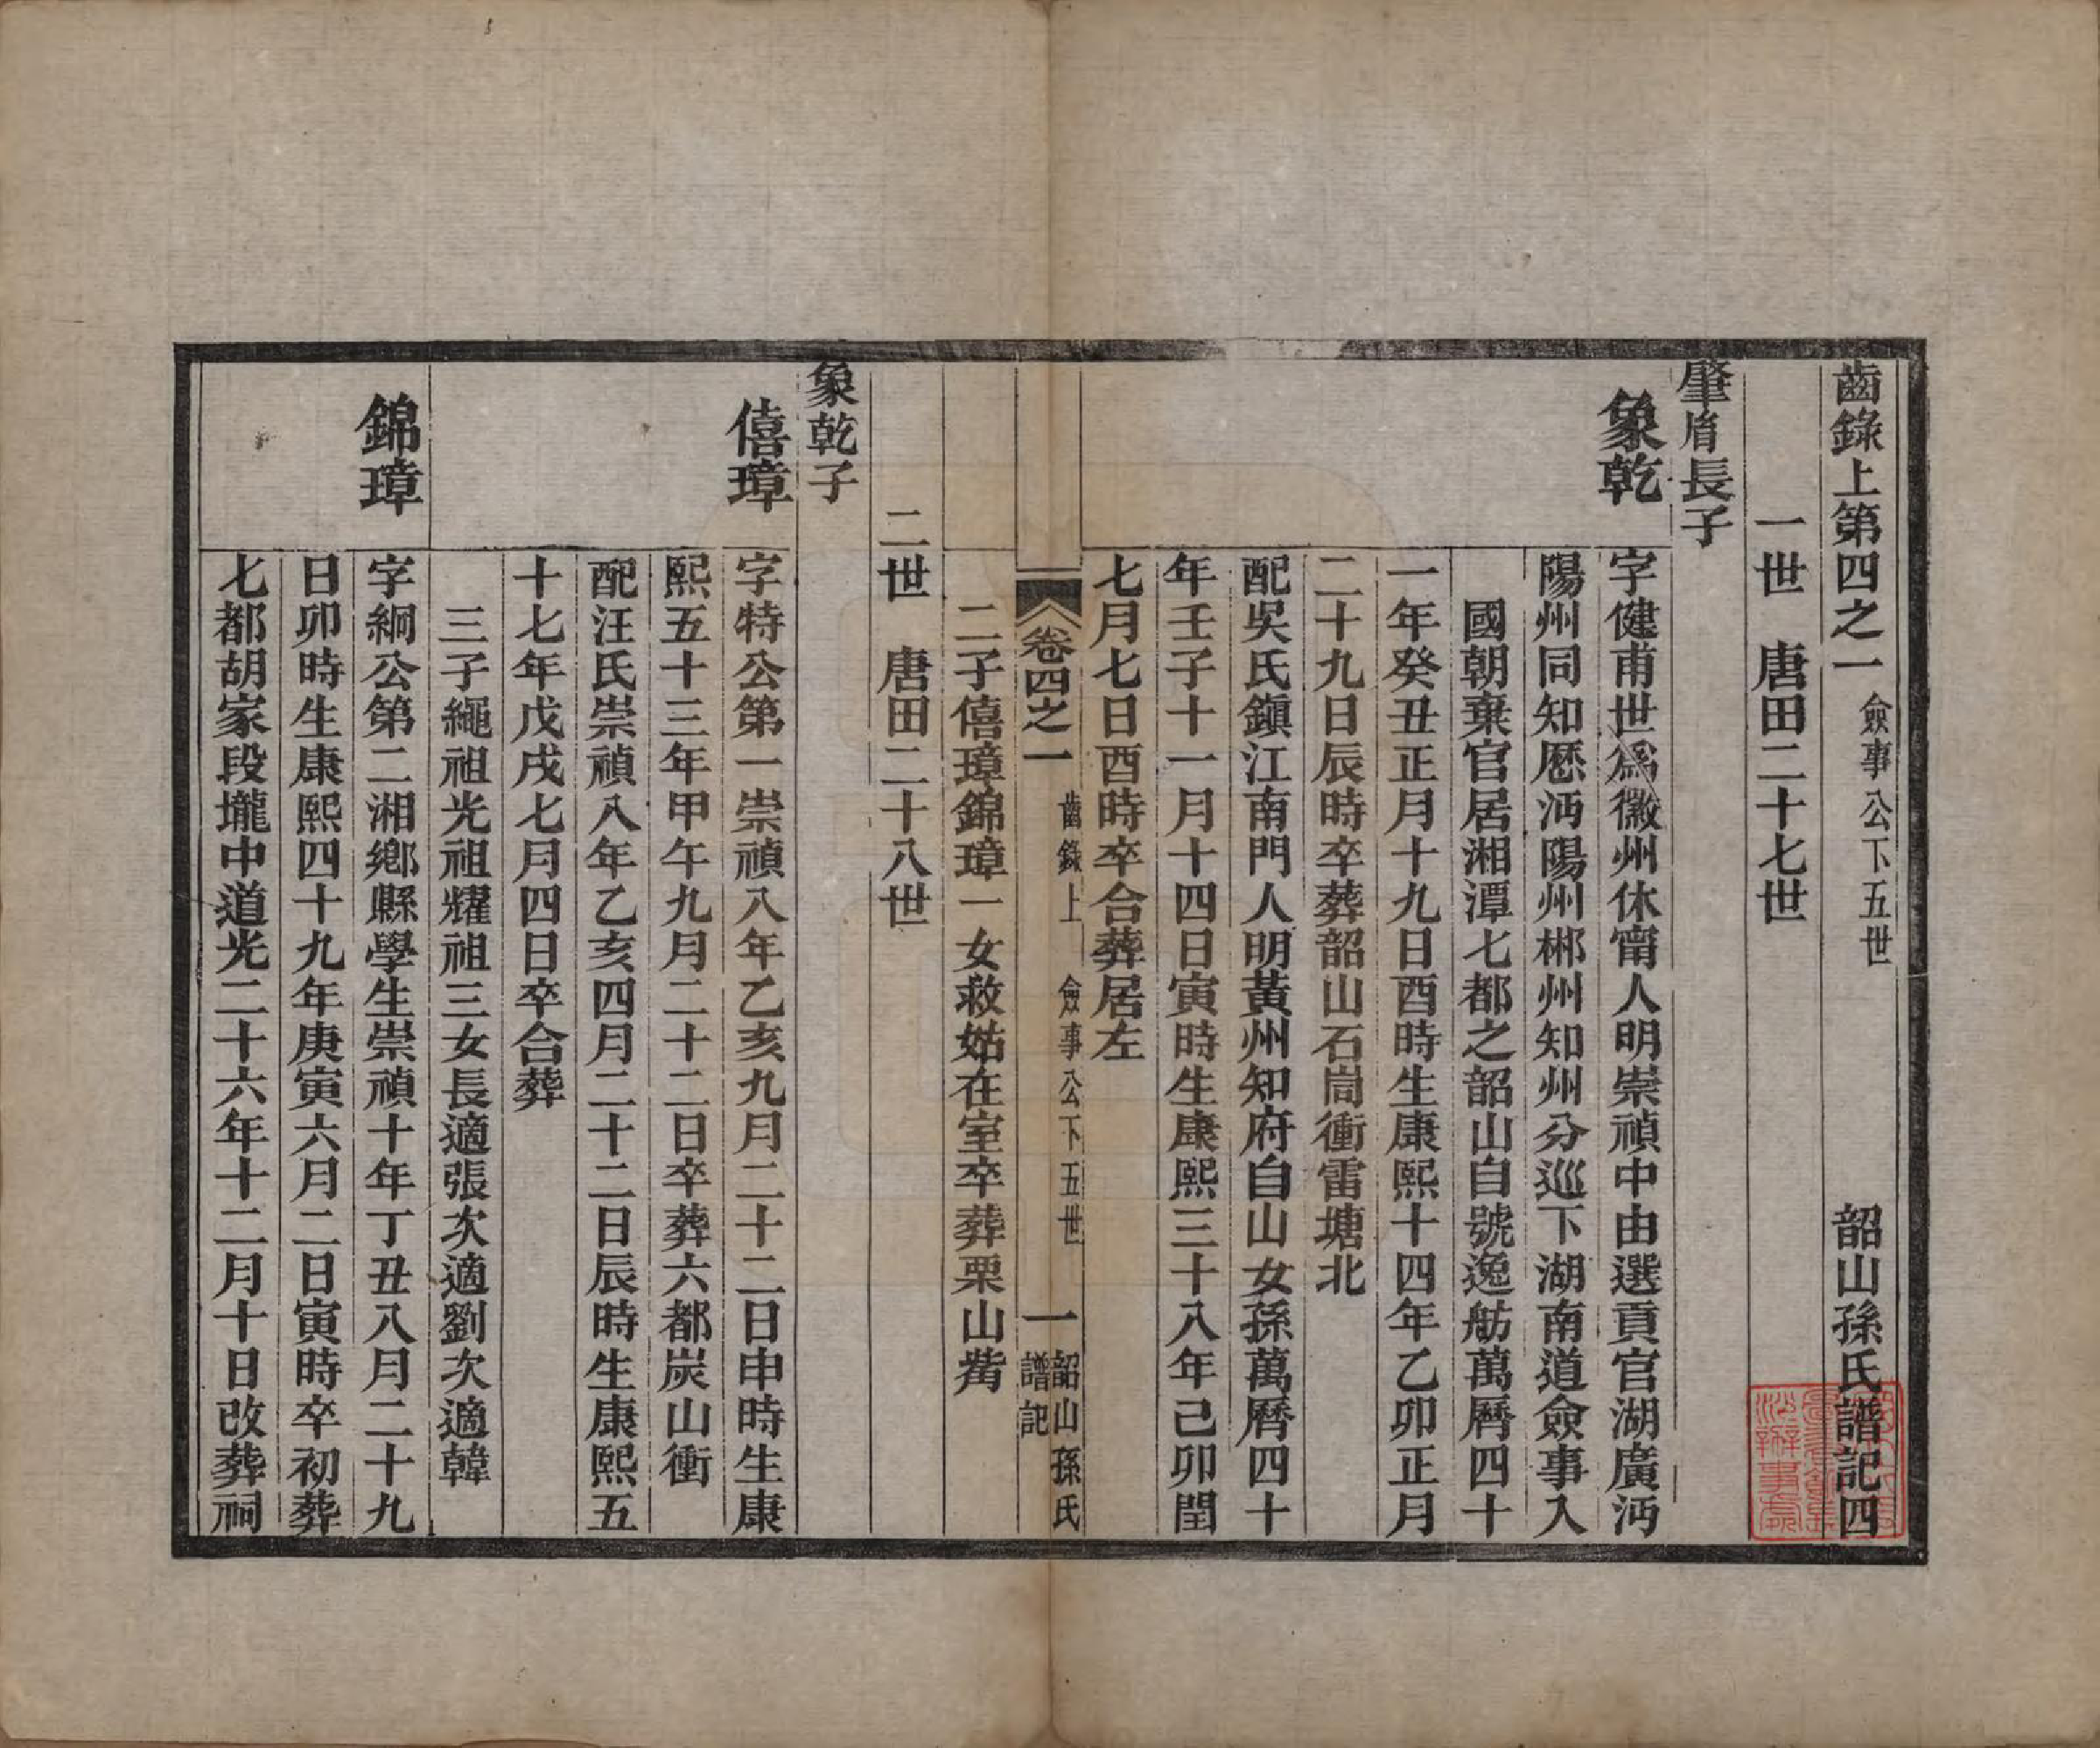 齒錄上第四之一 僉事公下五世 韶山孫氏譜記四
一世 唐田二十七世
肇脜長子
象乾
字健甫世爲徽州休甯人明崇禎中由選貢官湖廣沔
陽州同知歷沔陽州郴州知州分巡下湖南道僉事入
國朝棄官居湘潭七都之韶山自號逸舫萬曆四十
一年癸丑正月十九日酉時生康熙十四年乙卯正月
二十九日辰時卒葬韶山石崗衝雷塘北
配吳氏鎭江南門人明黃州知府自山女孫萬曆四十
年壬子十一月十四日寅時生康熙三十八年己卯閏
七月七日酉時卒合葬居左
卷四之一 齒錄上 僉事公下五世 一 韶山孫氏譜記
二子僖璋錦璋一女救姑在室卒葬栗山觜
二世 唐田二十八世
象乾子
僖璋
字特公第一崇禎八年乙亥九月二十二日申時生康
熙五十三年甲午九月二十二日卒葬六都炭山衝
配汪氏崇禎八年乙亥四月二十二日辰時生康熙五
十七年戊戌七月四日卒合葬
三子繩祖光祖耀祖三女長適張次適劉次適韓
錦璋
字絅公第二湘鄕縣學生崇禎十年丁丑八月二十九
日卯時生康熙四十九年庚寅六月二日寅時卒初葬
七都胡家段壠中道光二十六年十二月十日改葬祠